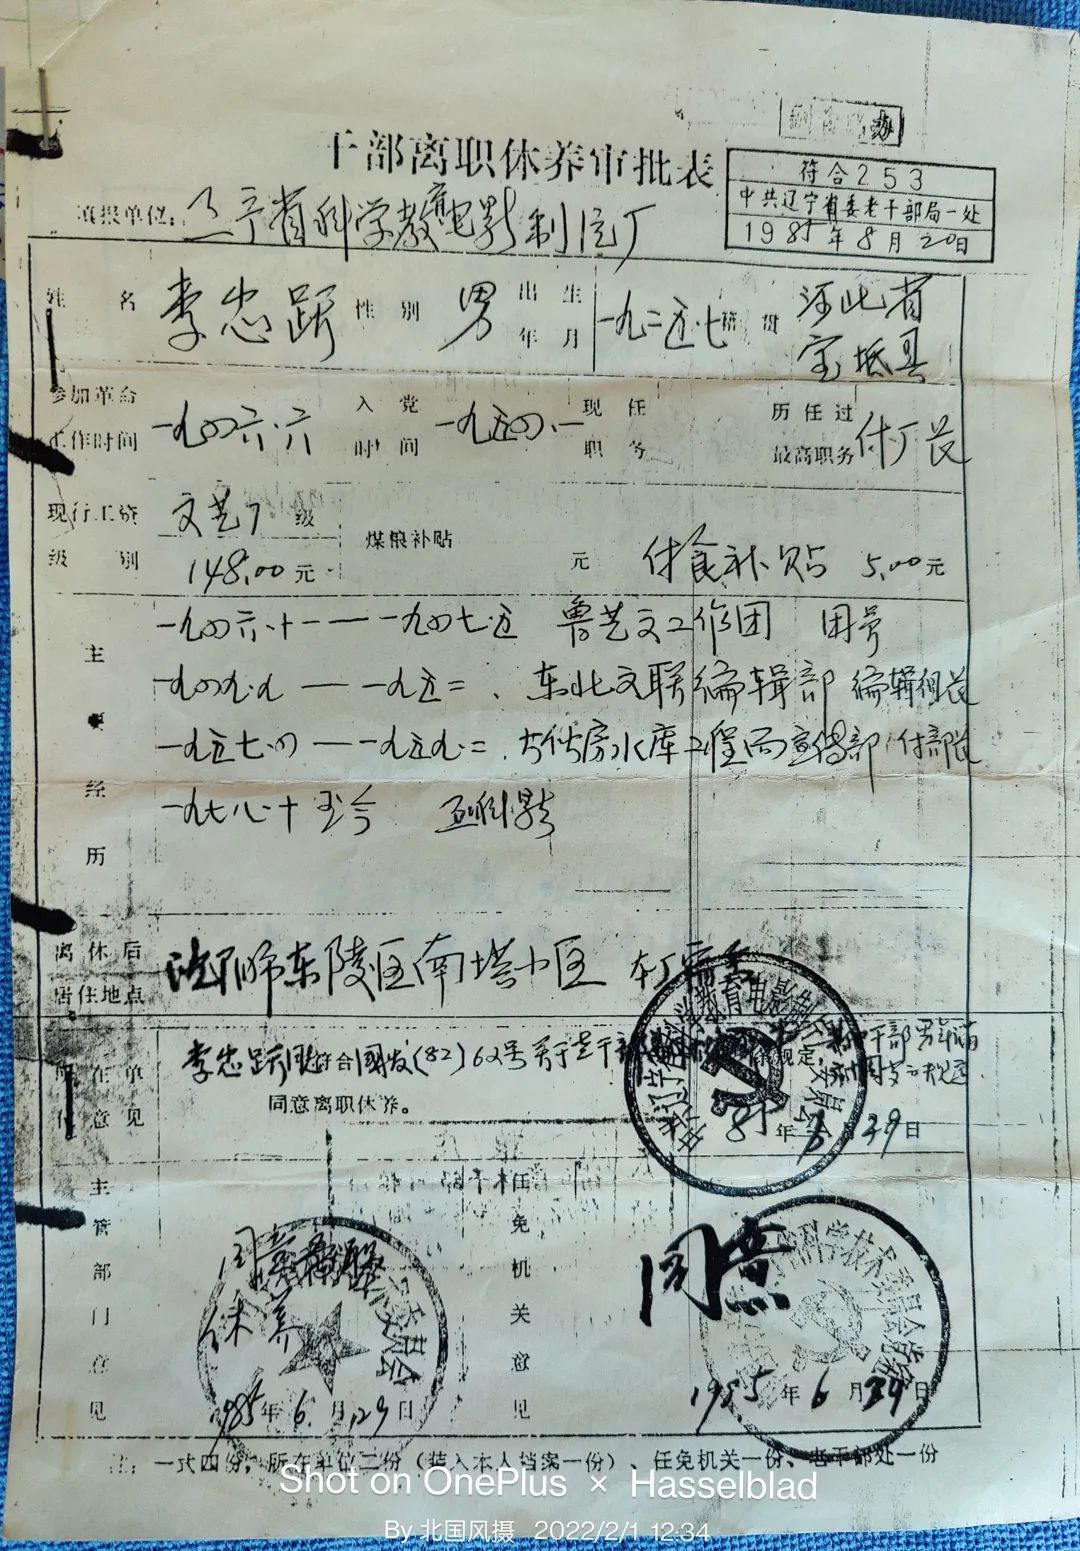 干部离职休养审批表
符合253
中共辽宁省委老干部局一处
1985年8月20日
填报单位:辽宁省科学教育电影制片厂
姓名 李忠跃 性别 男 出生年月 一九二五·七 籍贯 河北省宝坻县
参加革命工作时间 一九四六·六 入党时间 一九五四·一 现任职务 历任过最高职务 付厂长
现行工资级别 文艺7级 148.00元 煤粮补贴 元 付食补贴 5.00元
主要经历
一九四六·十一——一九四七·五 鲁艺文工作团 团员
一九四九·九——一九五二 东北文联编辑部 编辑组长
一九五七·四——一九五九·二 大伙房水库工程局宣传部 付部长
一九七八·十至今 辽科影
离休后居住地点 沈阳市东陵区南塔小区 本厂宿舍
所在单位意见
李忠跃同志符合国发(82)62号关于老干部 规定
同意离职休养。
85年 月29日
主管部门意见
同意离职休养
1985年6月29日
任免机关意见
同意
1985年6月29日
科学技术委员会
注:一式四份,所在单位二份(装入本人档案一份)、任免机关一份、老干部处一份
Shot on OnePlus × Hasselblad
By 北国风摄 2022/2/1 12:34